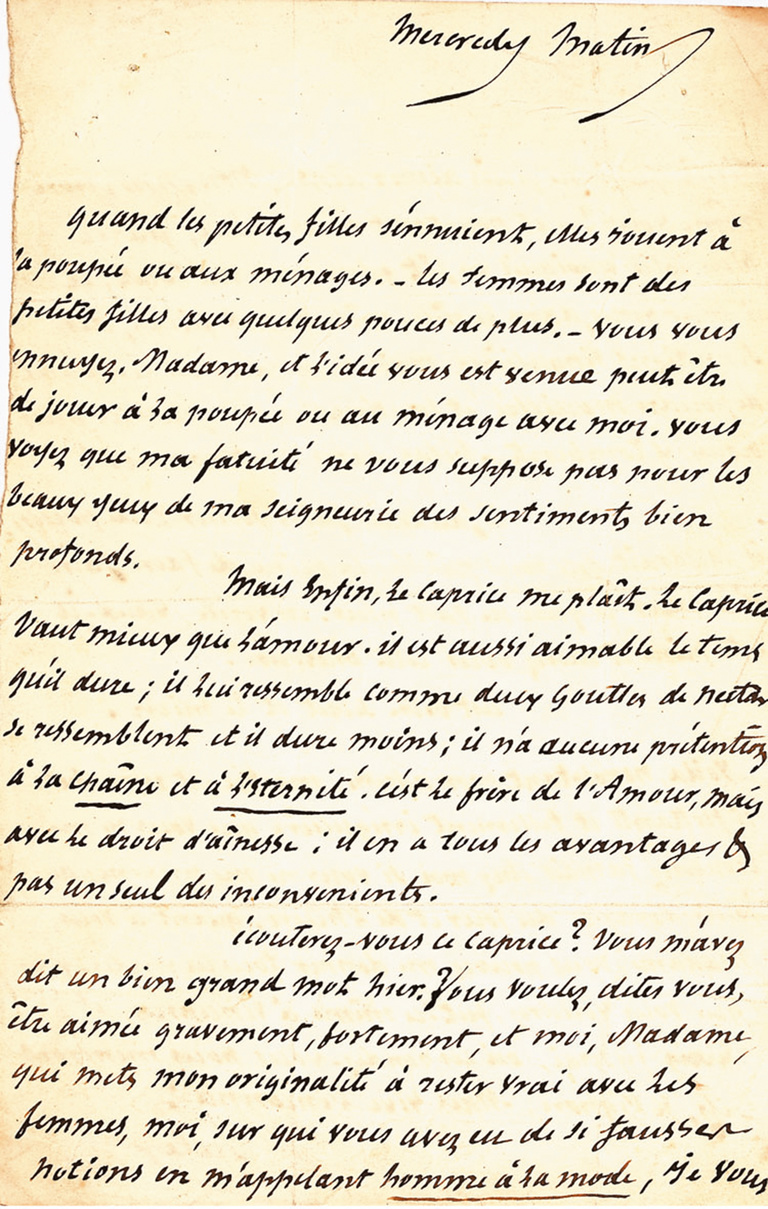 Mercredy Matin
quand les petites filles s'ennuient, elles jouent à
la poupée ou aux ménages. _ les femmes sont des
petites filles avec quelques pouces de plus. _ vous vous
ennuyez, Madame, et l'idée vous est venue peut être
de jouer à la poupée ou au ménage avec moi. vous
voyez que ma fatuité ne vous suppose pas pour les
beaux yeux de ma seigneurie des sentiments bien
profonds.
Mais Enfin, le caprice me plaît. le Caprice
vaut mieux que l'amour. il est aussi aimable le tems
qu'il dure ; il lui ressemble comme deux Gouttes de nectar
se ressemblent et il dure moins ; il n'a aucune prétention
à la chaîne et à l'Eternité. c'est le frère de l'Amour, mais
avec le droit d'aînesse ; il en a tous les avantages &
pas un seul des inconvenients.
écouterez-vous ce caprice ? Vous m'avez
dit un bien grand mot hier. Vous voulez, dites vous,
être aimée gravement, fortement, et moi, Madame,
qui mets mon originalité à rester vrai avec les
femmes, moi, sur qui vous avez eu de si fausses
notions en m'appelant homme à la mode, Je vous